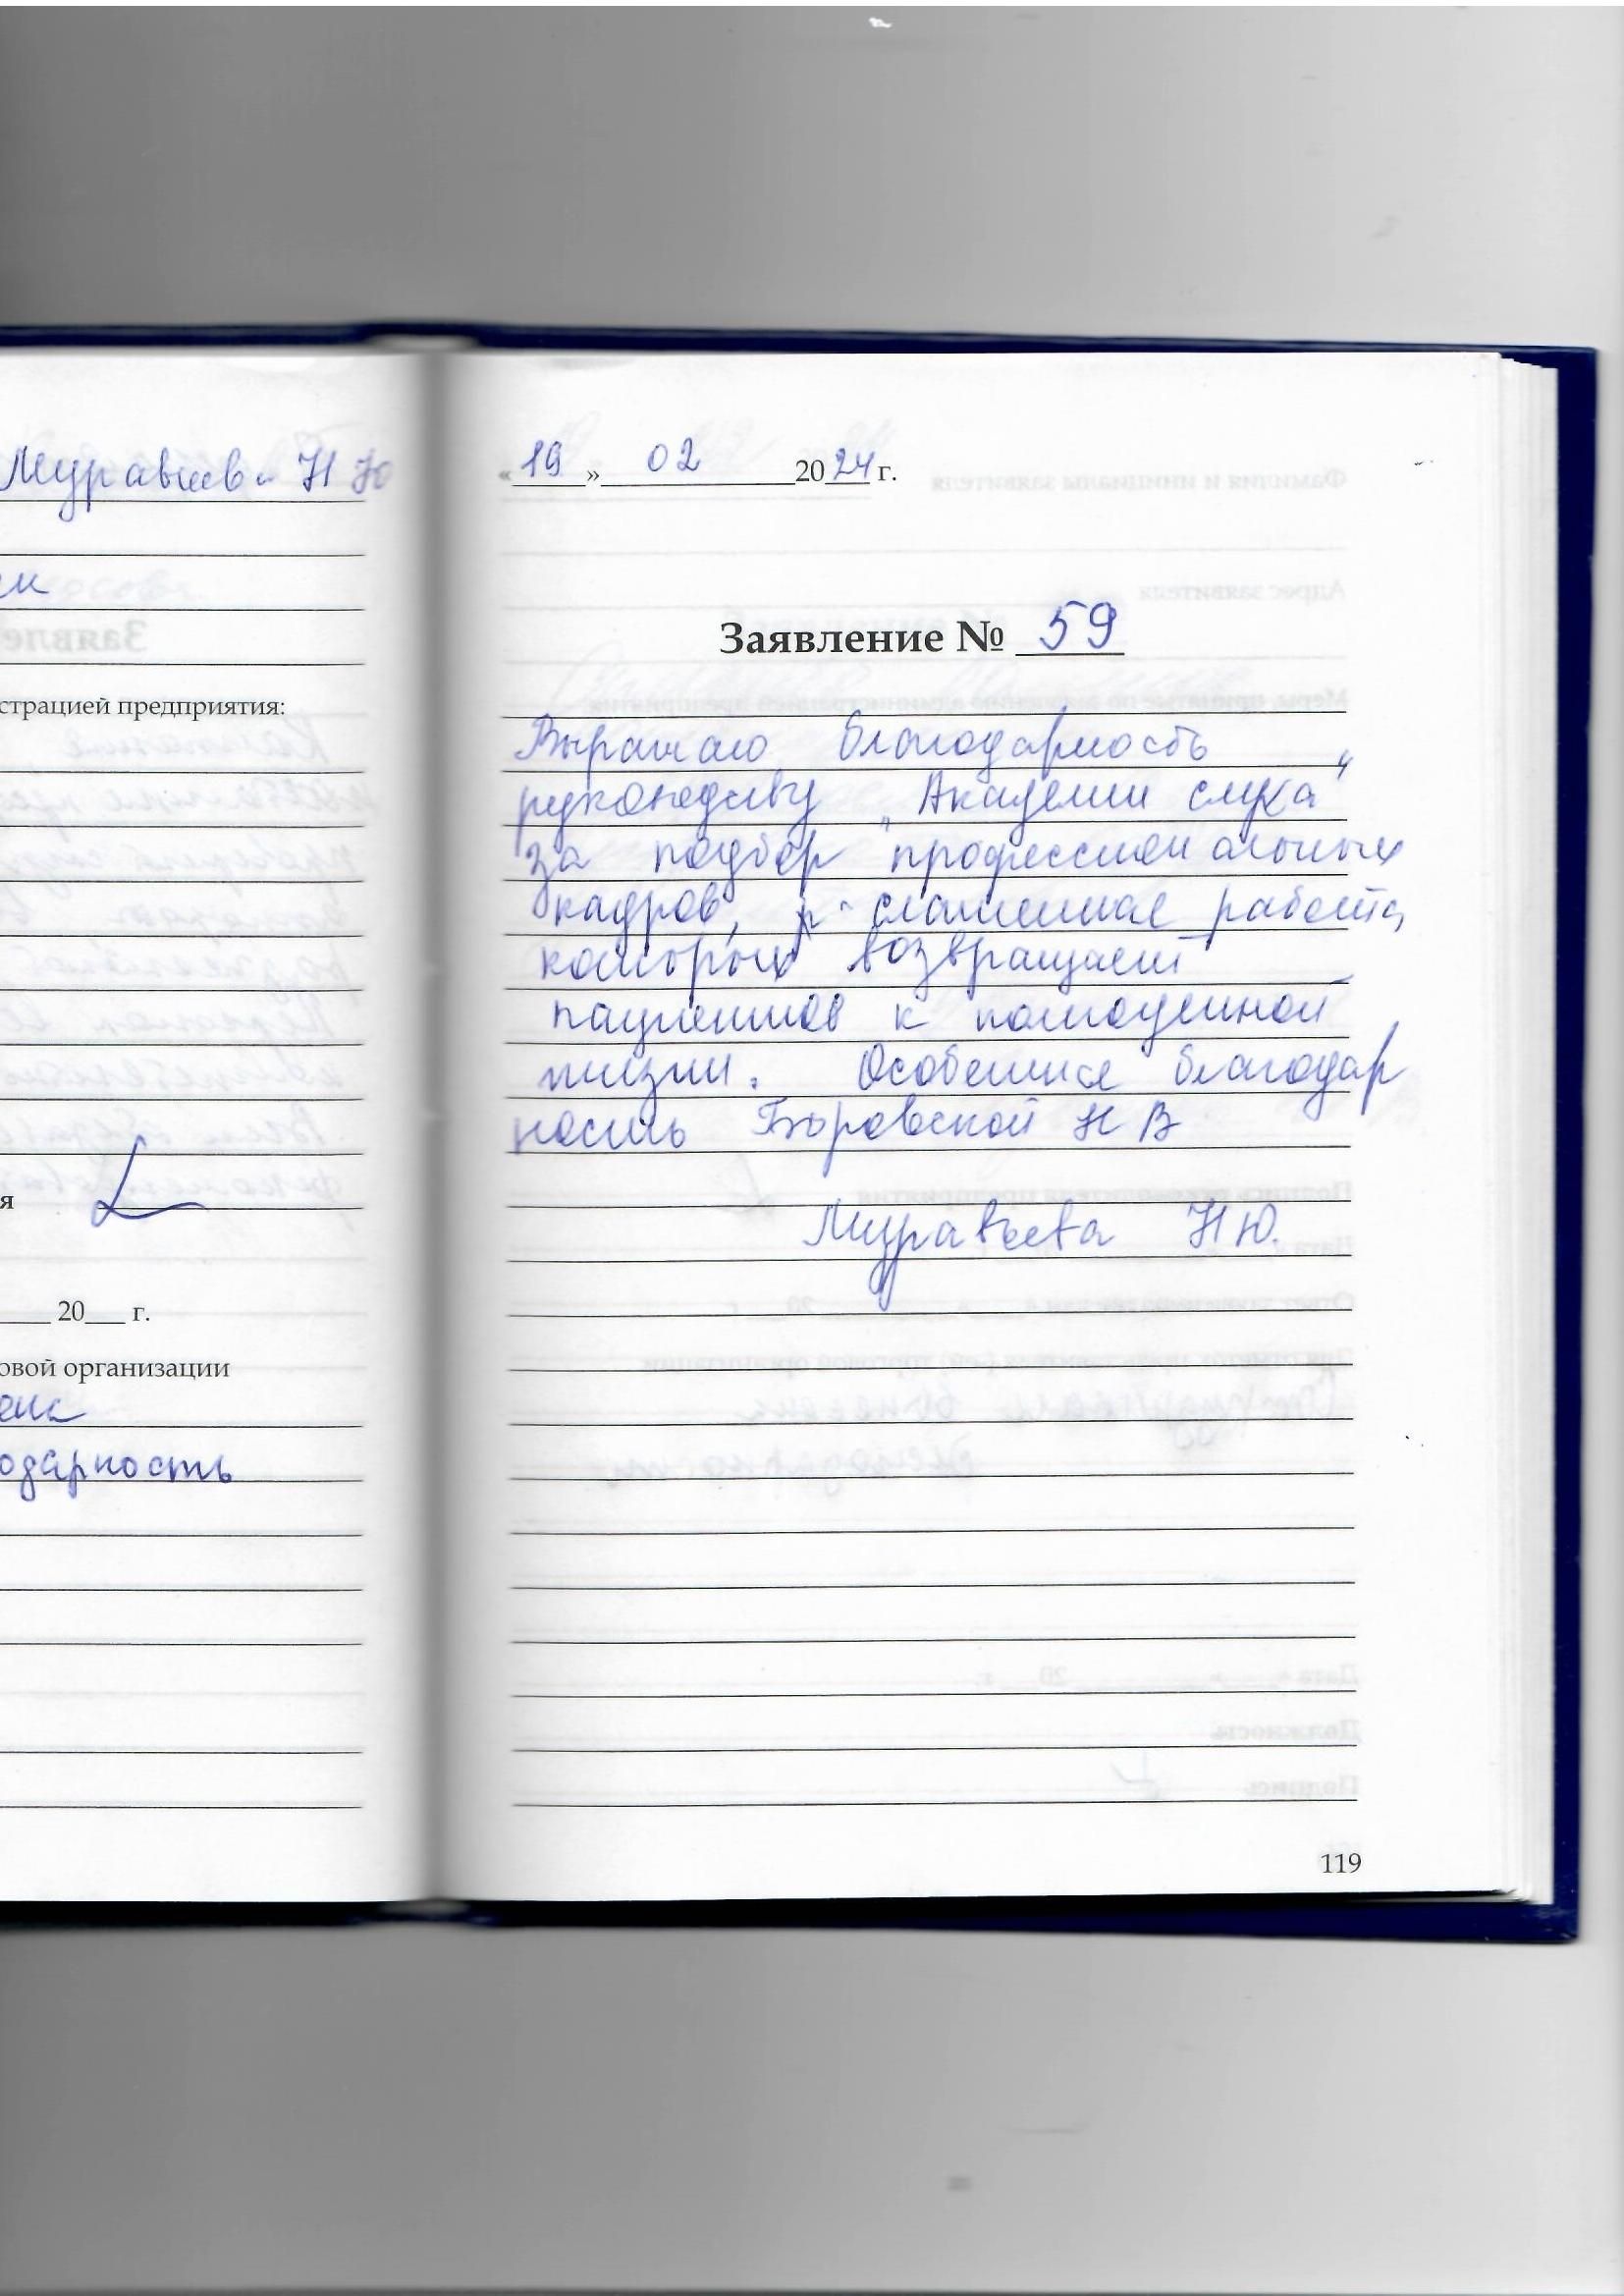 Муравьева Н Ю
страцией предприятия:
я
20 г.
овой организации
одарность
« 19 » 02 2024 г.
Заявление № 59
Выражаю благодарность
руководству „Академии слуха"
за подбор профессиональных
кадров, слаженная работа,
которых возвращает
пациентов к полноценной
жизни. Особенная благодар
ность Боровской Н В
Муравьева Н Ю.
119